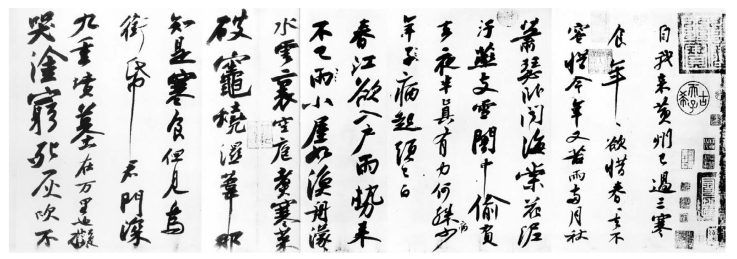 自我来黄州已過三寒
食年〻欲惜春〻去不
容惜今年又苦雨兩月秋
蕭瑟卧聞海棠花泥
汙燕支雪闇中偷負
去夜半真有力何殊病少
年子病起頭已白
春江欲入户雨勢来
不已雨小屋如漁舟濛〻
水雲裏空庖煑寒菜
破竈燒濕葦那
知是寒食但見烏
銜帋君門深
九重墳墓在万里也擬
哭塗窮死灰吹不
古希天子